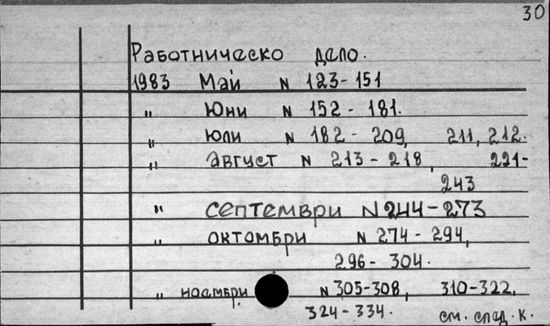 30
Работническо дело.
1983 Май N 123-151
" Юни N 152 - 181.
" Юли N 182 - 209, 211, 212.
" Август N 213 - 218, 221-
243
" септември N 244-273
" октомбри N 274 - 294,
296 - 304.
" ноември N 305-308, 310-322,
324-334. см. след. к.